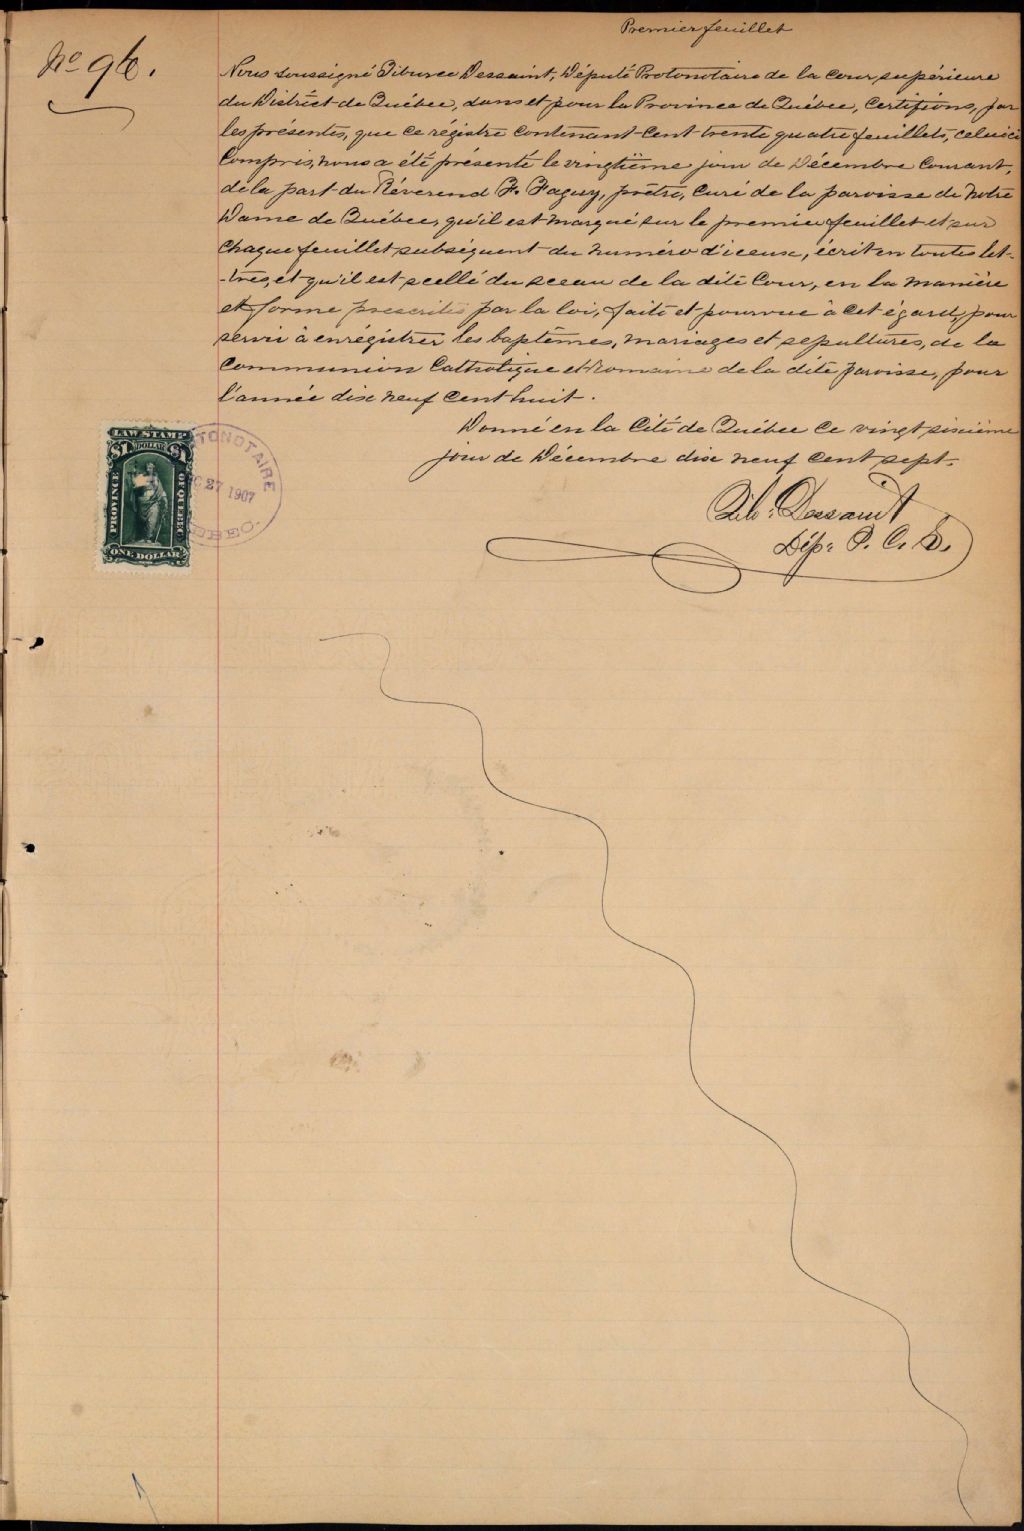 Premier feuillet
No 96.
Nous soussigné Tiburce Dessaint, Député Protonotaire de la cour supérieure
du District de Québec, dans et pour la Province de Québec, Certifions, par
les présentes, que ce régistre contenant cent trente quatre feuillets, celui ci
compris, nous a été présenté le vingtième jour de Décembre courant,
de la part du Réverend F. Faguy, prêtre, Curé de la paroisse de Notre
Dame de Québec, qu'il est marqué sur le premier feuillet et sur
chaque feuillet subséquent du numéro d'iceux, écrit en toutes let-
-tres, et qu'il est scellé du sceau de la dite Cour, en la manière
et forme prescrites par la loi, faite et pourvue à cet égard, pour
servir à enrégistrer les baptêmes, mariages et sepultures, de la
Communion Catholique et Romaine de la dite paroisse, pour
l'année dix neuf cent huit.
Donné en la Cité de Québec ce vingt sixième
jour de Décembre dix neuf cent sept.
Tib: Dessaint
Dép: P. C. S.
LAW STAMP
$1 DOLLAR $1
PROVINCE OF QUEBEC
ONE DOLLAR
TONOTAIRE
C 27 1907
UEBEC.